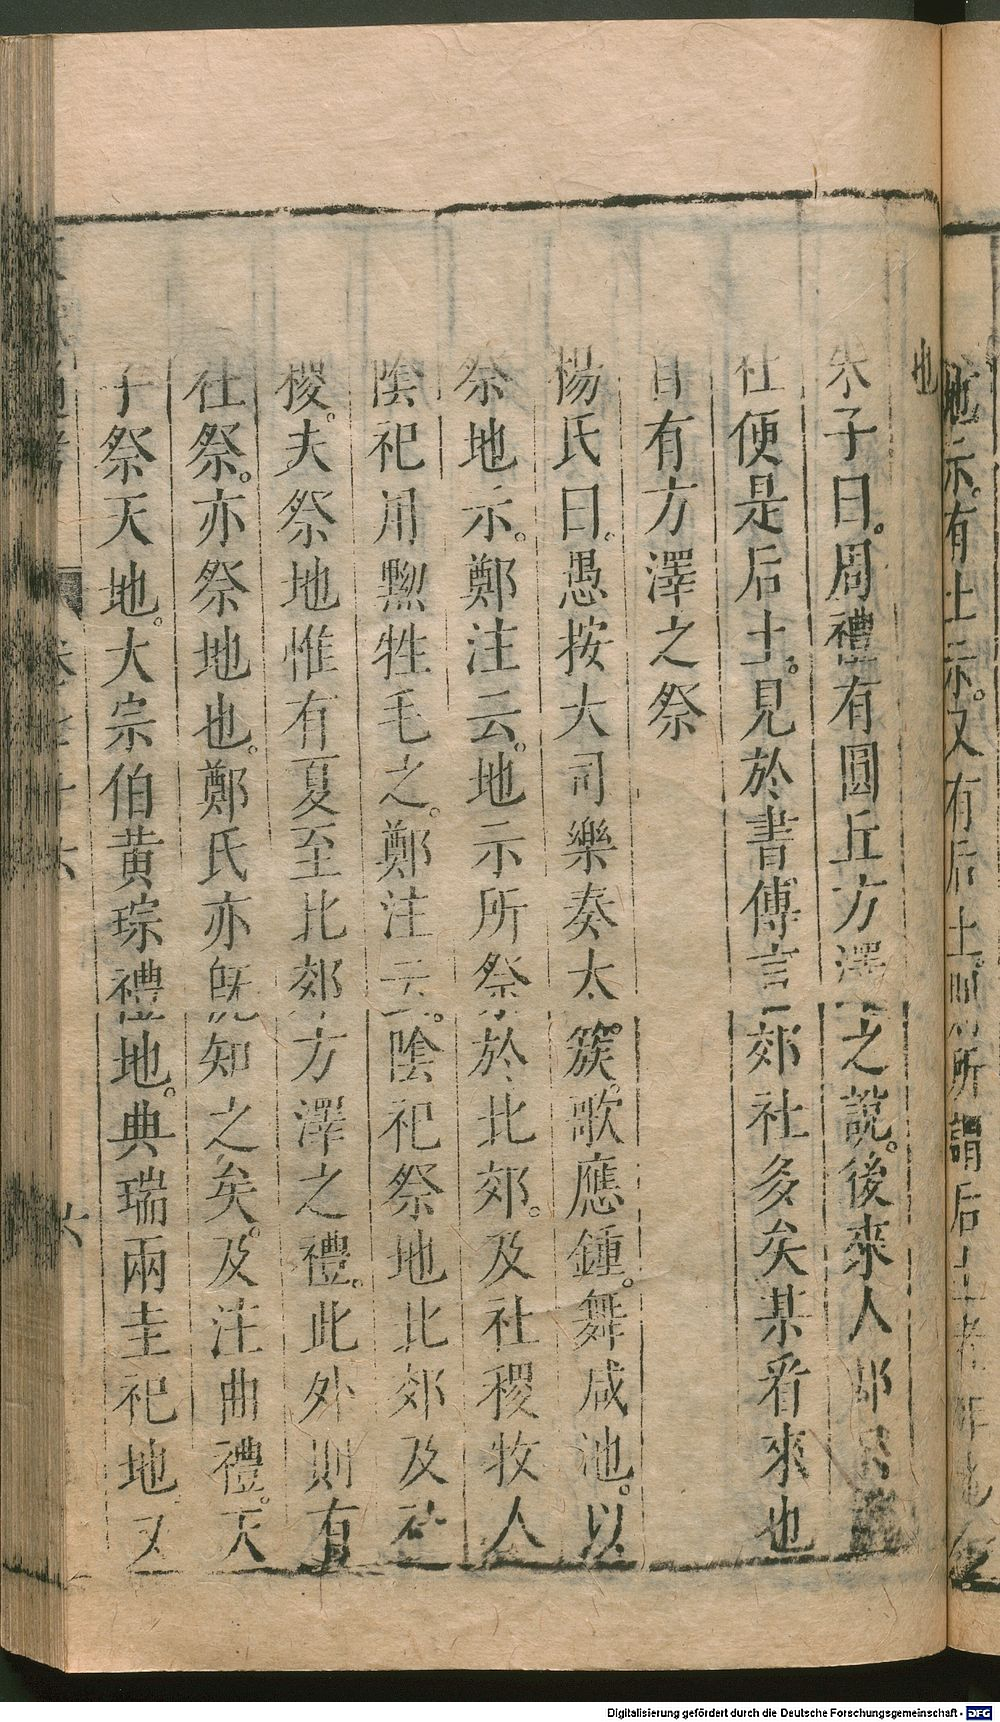 地示。有土示。又有后土 所謂后土者
也
朱子曰。周禮有圓丘方澤之說。後來人都
社便是后土。見於書傳言郊社多矣某看來也
自有方澤之祭
楊氏曰。愚按大司樂奏太簇。歌應鍾。舞咸池。以
祭地示。鄭注云。地示所祭於北郊。及社稷牧人
陰祀用黝牲毛之。鄭注云。陰祀祭地北郊及社
稷。夫祭地惟有夏至北郊方澤之禮。此外則有
社祭。亦祭地也。鄭氏亦旣知之矣。及注曲禮。天
子祭天地。大宗伯黃琮禮地。典瑞兩圭祀地又
通考 卷七十六 六
Digitalisierung gefördert durch die Deutsche Forschungsgemeinschaft - DFG